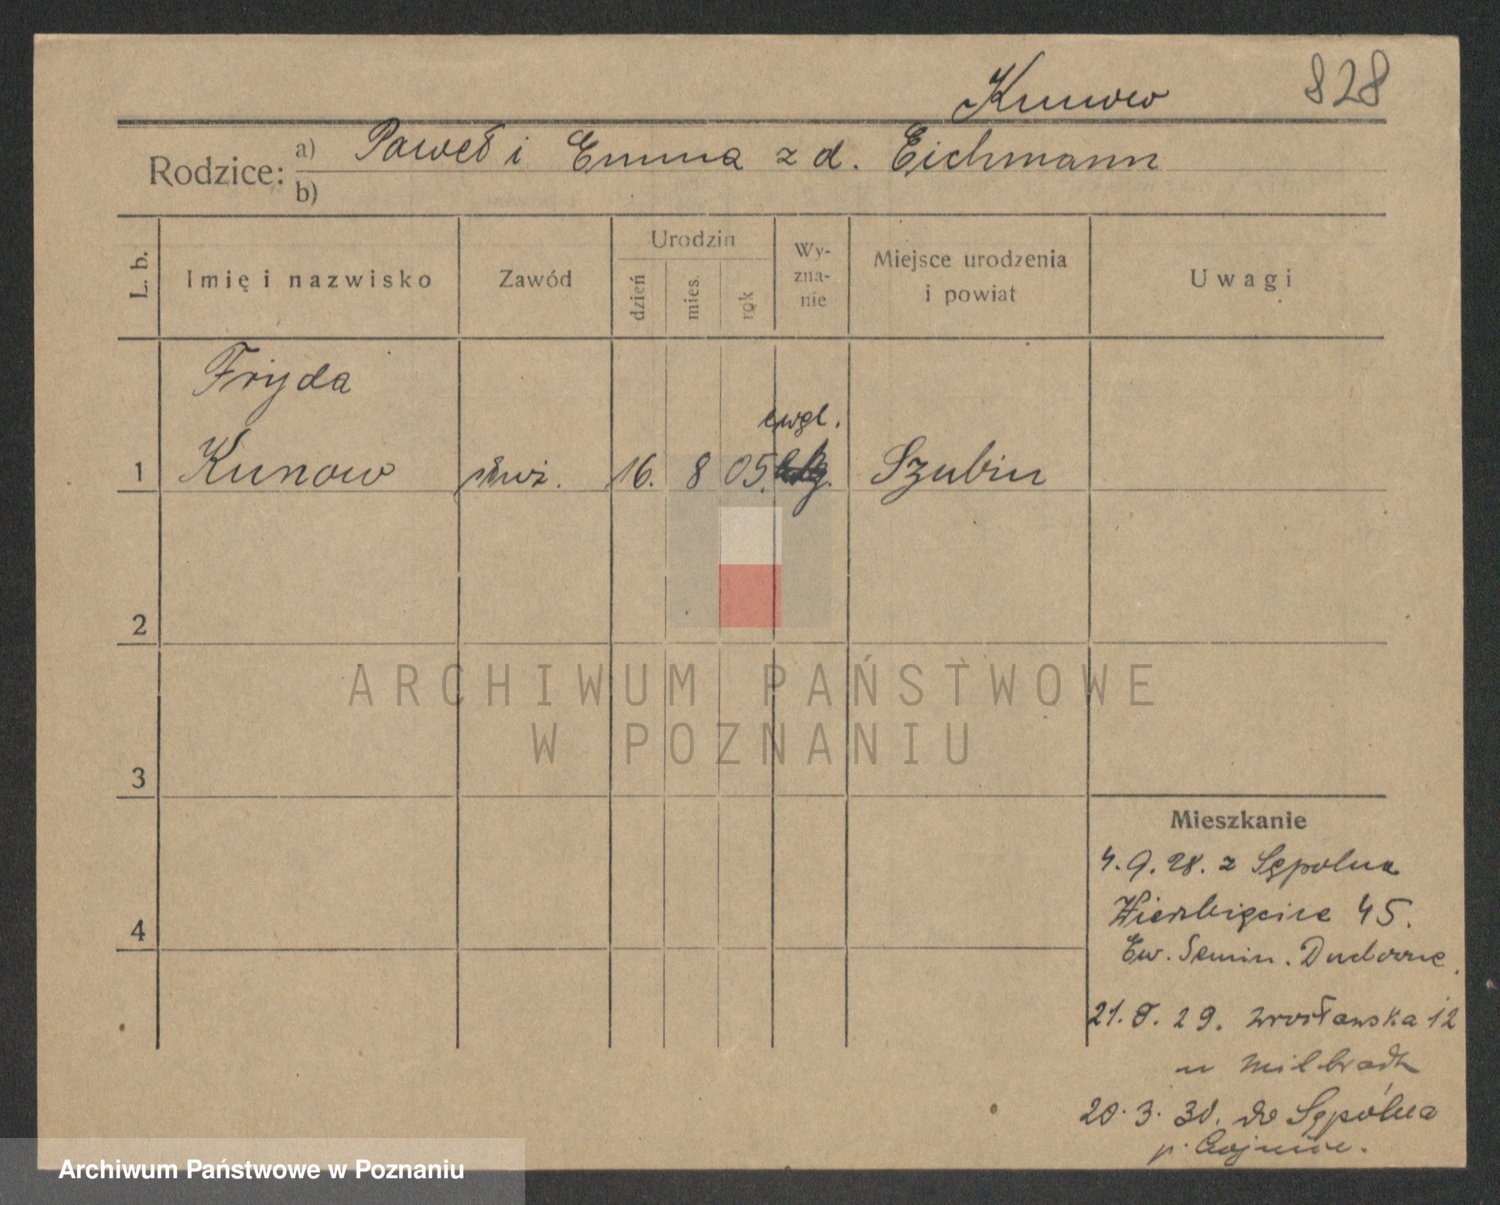 Kunow 828
Rodzice: a) Paweł i Emma z d. Eichmann
b)
L. b. Imię i nazwisko Zawód Urodzin dzień mies. rok Wy-zna-nie Miejsce urodzenia i powiat Uwagi
Fryda
ewgl.
1 Kunow służ. 16. 8 05. Szubin
2
3
4
Mieszkanie
4. 9. 28. z Sępolna
Wierzbięcice 45.
Ew. Semin. Duchowne.
21. 8. 29. Wrocławska 12
u Milbradt
20. 3. 30. do Sępólna
p. Chojnice.
ARCHIWUM PAŃSTWOWE
W POZNANIU
Archiwum Państwowe w Poznaniu